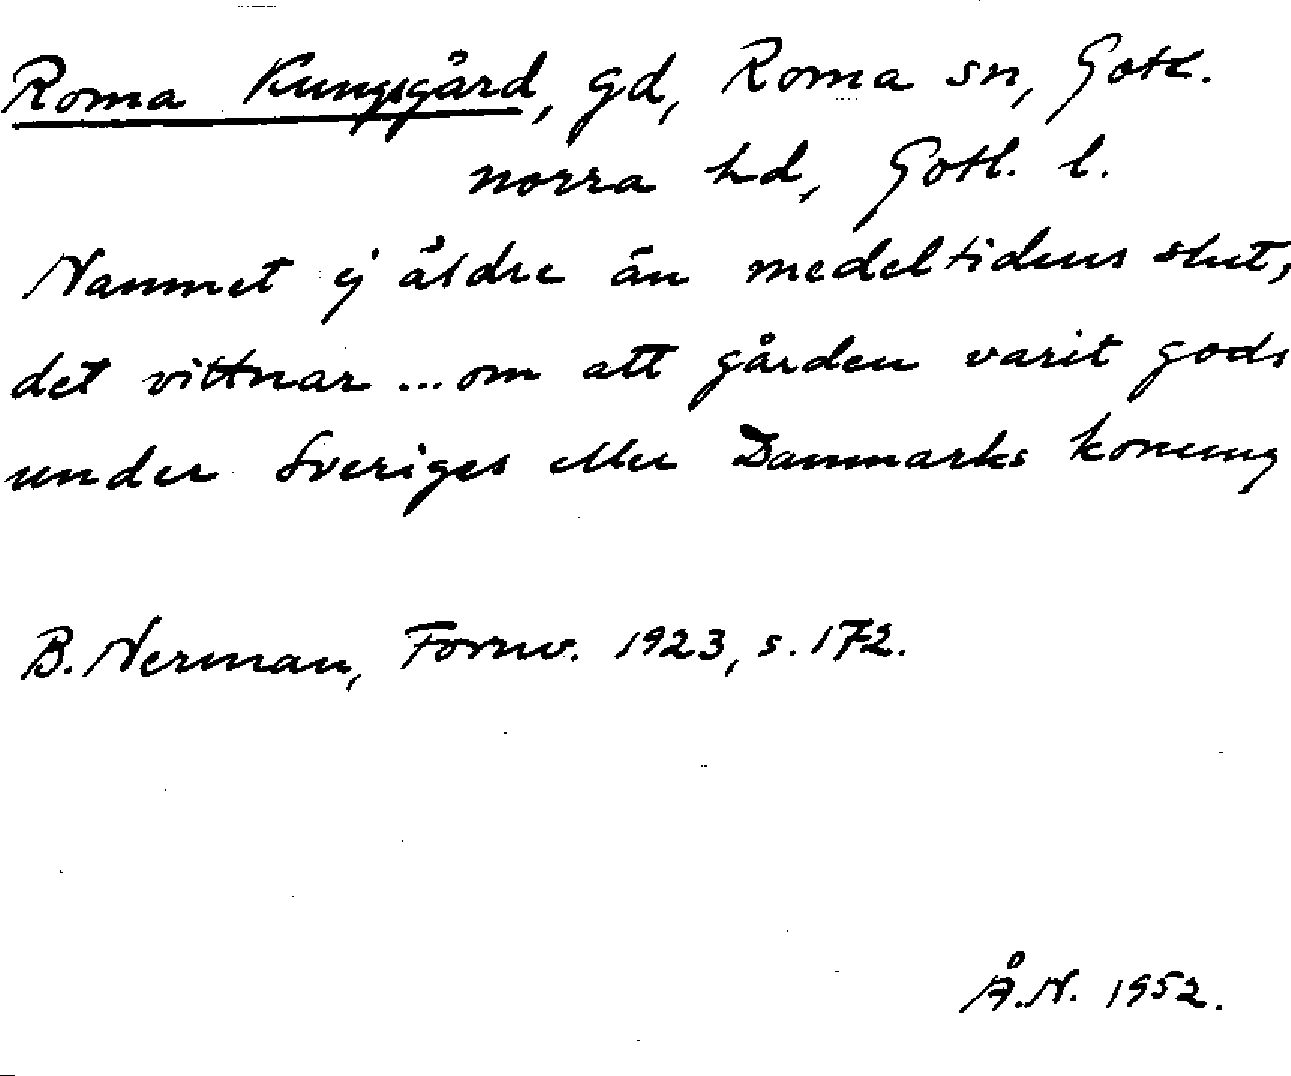 Roma Kungsgård, gd, Roma sn, Gotl.
norra hd, Gotl. l.
Namnet ej äldre än medeltidens slut,
det vittnar ... om att gården varit gods
under Sveriges eller Danmarks konung
B. Nerman, Fornv. 1923, s. 172.
Å.N. 1952.